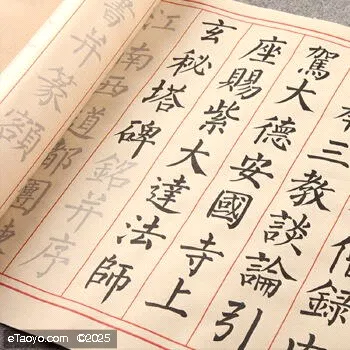 僧録
三教談論引
駕大德安國寺上
座賜紫大達法師
玄秘塔碑銘并序
江南西道都團練
書并篆額
eTaoyo.com ©2025